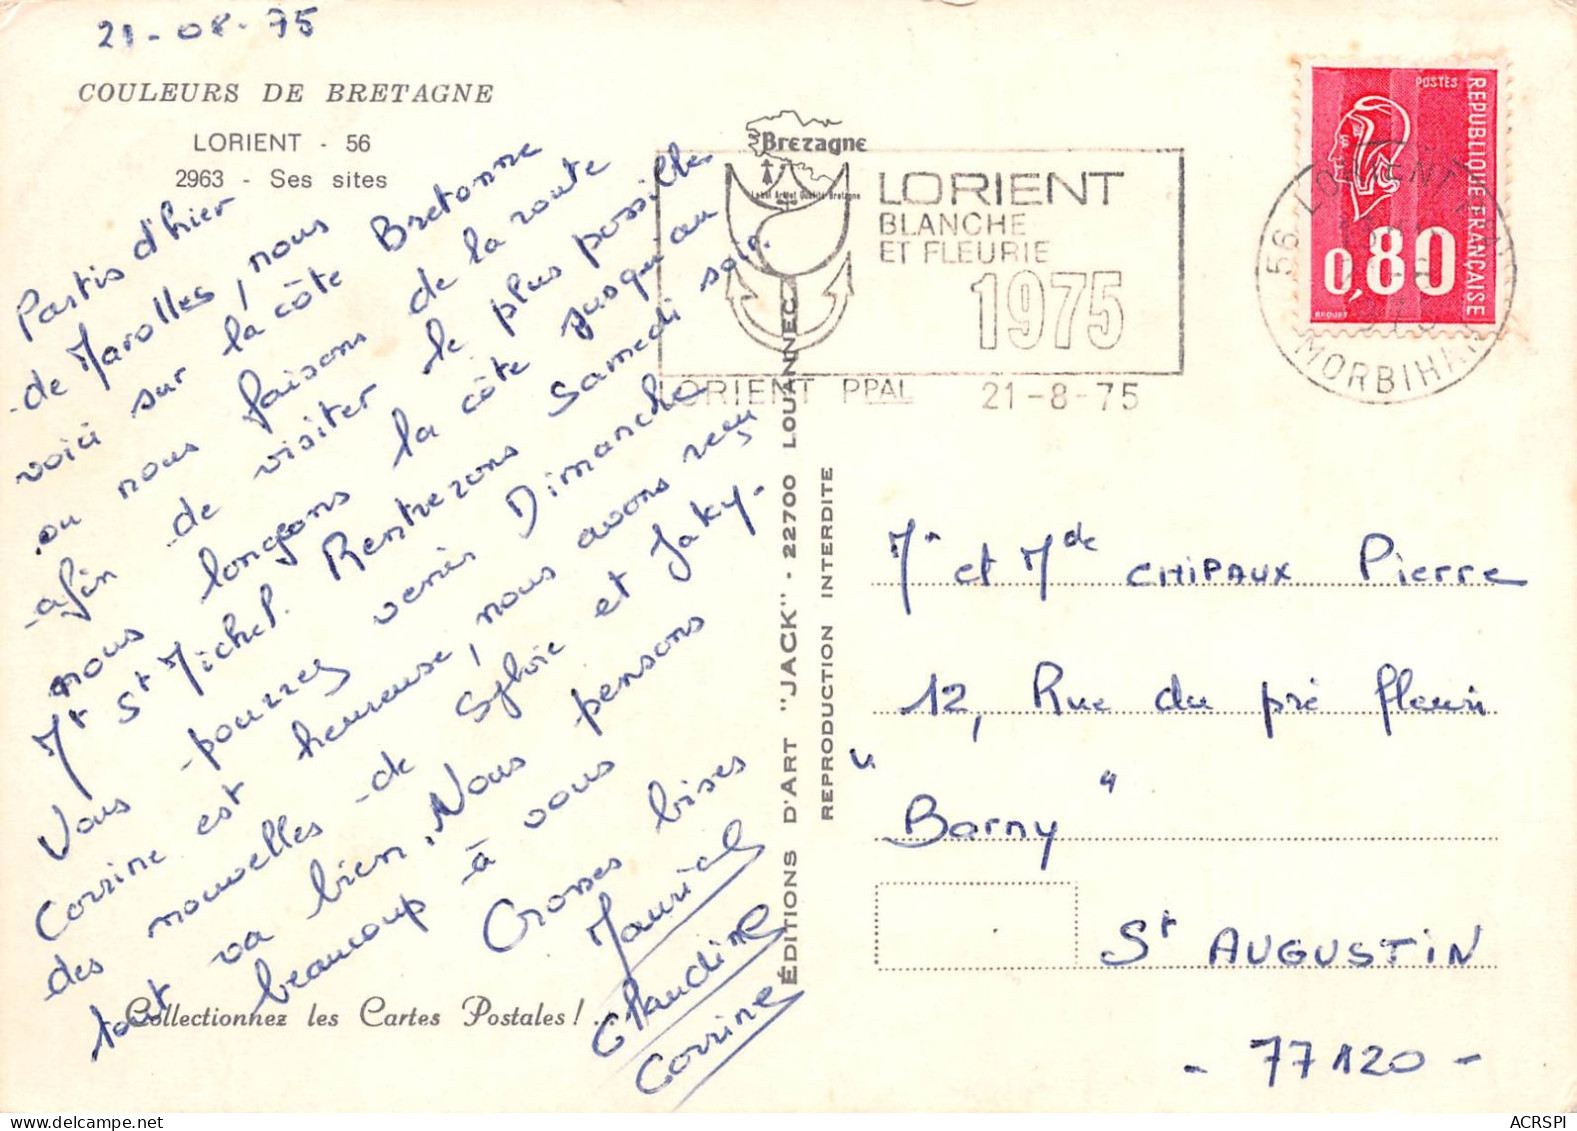 21-08-75
COULEURS DE BRETAGNE
LORIENT - 56
2963 - Ses sites
Partis d'hier
de Marolles, nous
voici sur la côte Bretonne
ou nous faisons de la route
afin de visiter le plus possible
nous longeons la côte jusqu'au
Mt St Michel. Rentrerons Samedi soir.
Vous pourrez venir Dimanche
Corrine est heureuse, nous avons reçu
des nouvelles de Sylvie et Jaky.
tout va bien. Nous pensons
beaucoup à vous
Grosses bises
Maurice
Claudine
Corrine
Collectionnez les Cartes Postales !
ÉDITIONS D'ART "JACK" - 22700 LOUANNEC
REPRODUCTION INTERDITE
Bretagne
Label
LORIENT
BLANCHE
ET FLEURIE
1975
LORIENT PPAL 21-8-75
POSTES
REPUBLIQUE FRANÇAISE
0,80
56 LORIENT
MORBIHAN
Mr et Mde CHIPAUX Pierre
12, Rue du pré fleuri
"Barny"
St AUGUSTIN
- 77120 -
ACRSPI